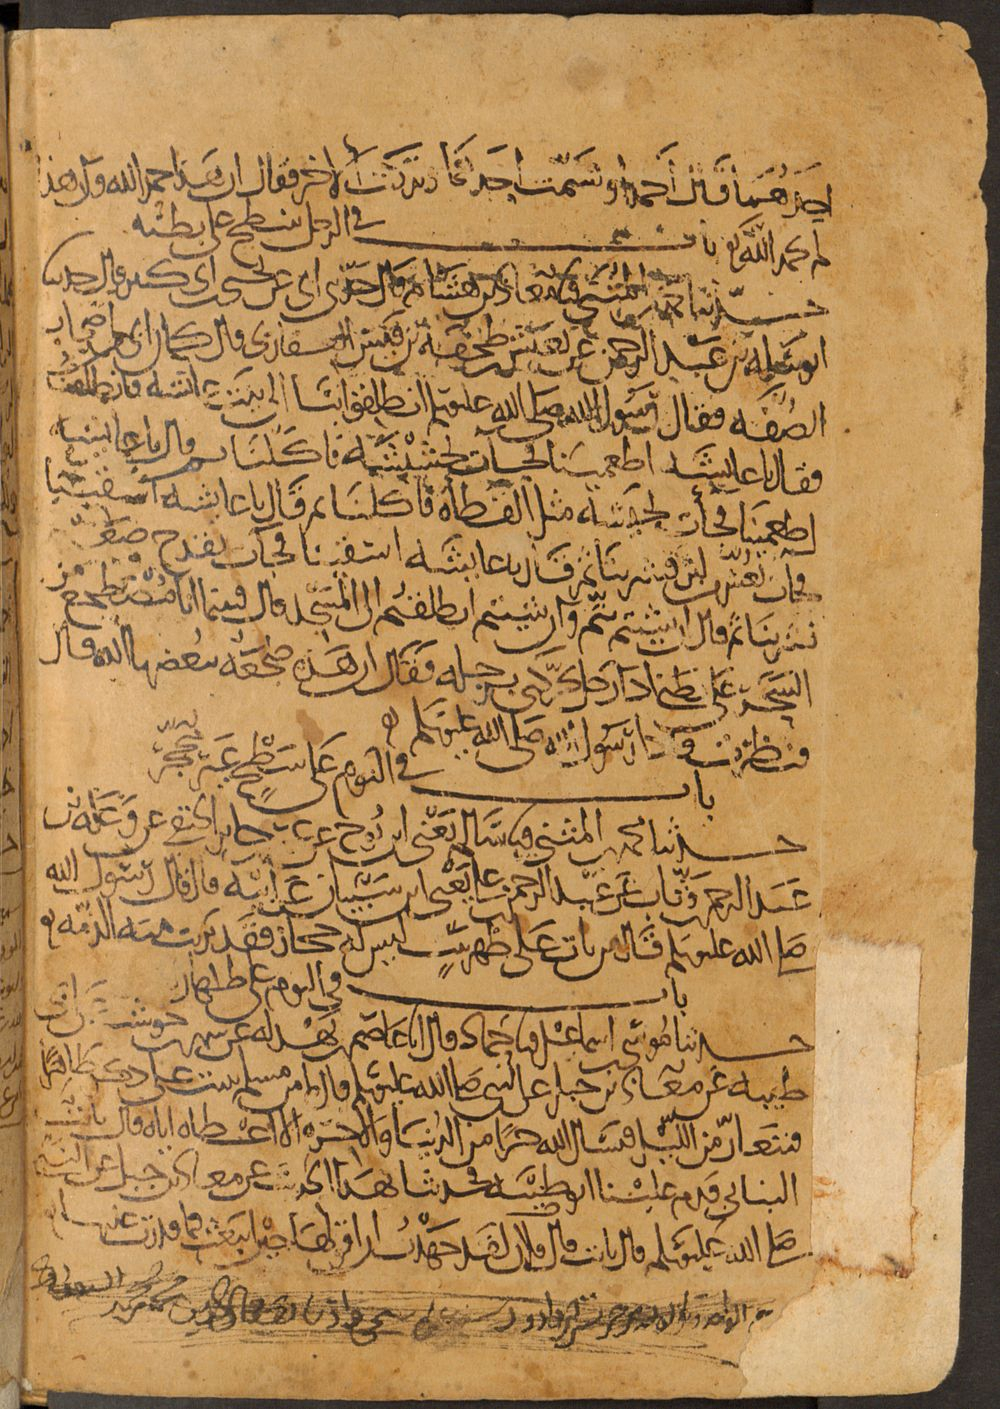 احدهما قال احمد او فسمت احدهما وتركت الاخر فقال ان هذا حمد الله وان هذا
لم يحمد الله باب في الرجل ينبطح على بطنه
حدثنا محمد بن المثنى نا معاذ بن هشام قال حدثني ابي عن يحيى بن ابي كثير قال حدثنا
ابو سلمه بن عبد الرحمن عن يعيش بن طخفه بن قيس الغفاري قال كان ابي من اصحاب
الصفه فقال رسول الله صلى الله عليه وسلم انطلقوا بنا الى بيت عائشه فانطلقنا
فقال يا عايشه اطعمينا فجآت بحشيشه فاكلنا ثم قال يا عايشه
اطعمينا فجأت بحيسه مثل القطاه فاكلنا ثم قال يا عايشه اسقينا
فجات بعس من لبن فشربنا ثم قال يا عايشه اسقينا فجآت بقدح صغير
فشربنا ثم قال ان شيتم نمتم وان شيتم انطلقتم الى المسجد قال فبينما انا مضطجع من
السحر على بطني اذا رجل يحركني برجله فقال ان هذه ضجعه يبغضها الله قال
فنظرت فاذا رسول الله صلى الله عليه وسلم
باب في النوم على سطح غير محجر
حدثنا محمد بن المثنى نا سالم يعني ابن نوح عن عمر بن جابر الحنفي عن وعله بن
عبد الرحمن بن وثاب عن عبد الرحمن بن علي يعني ابن شيبان عن ابيه قال قال رسول الله
صلى الله عليه وسلم قال من بات على ظهر بيت ليس له حجاز فقد بريت منه الذمه
باب في النوم على طهار
حدثنا موسى بن اسماعيل نا حماد قال انا عاصم بن بهدله عن شهر بن حوشب عن ابي
طيبه عن معاذ بن جبل عن النبي صلى الله عليه وسلم قال ما من مسلم يبيت على ذكر طاهرا
فيتعار من الليل فيسال الله خيرا من الدنيا والاخره الا اعطاه اياه قال ثابت
البناني قدم علينا ابو طيبه فحدثنا بهذا الحديث عن معاذ بن جبل عن النبي
صلى الله عليه وسلم قال ثابت قال فلان لقد جهدت ان اقولها حين انبعث فما قدرت عليها